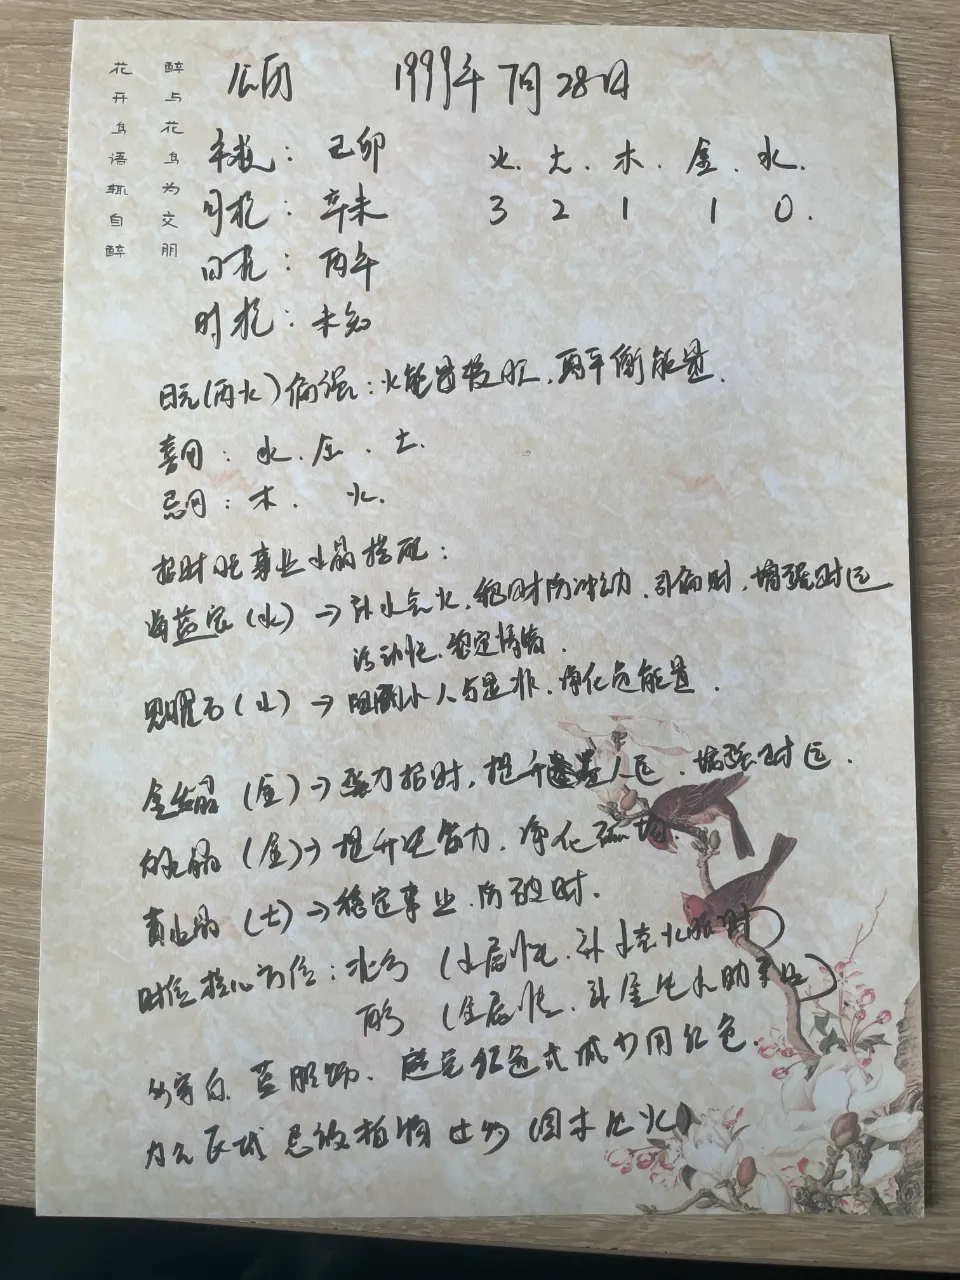 醉与花鸟为交朋
花开鸟语趣自醉
公历 1999年7月28日
年柱：己卯 火.土.木.金.水.
月柱：辛未 3 2 1 1 0.
日柱：丙午
时柱：未知
日元(丙火)偏强：火能量较旺,要平衡能量.
喜用：水.金.土.
忌用：木.火.
招财旺事业水晶搭配：
海蓝宝(水)→补水克火,稳财防冲动.引偏财,增强财运
流动性.稳定情绪.
黑曜石(水)→阻断小人与是非.净化负能量.
金发晶(金)→强力招财,提升贵人运.增强财运.
白水晶(金)→提升能力.净化磁场.
黄水晶(土)→稳定事业.防破财.
财位核心方位：北方(水属性.补水克火旺财)
西方(金属性.补金生水助事业)
多穿白.蓝服饰.避免红色或减少用红色.
办公区域忌放植物过多(因木生火)